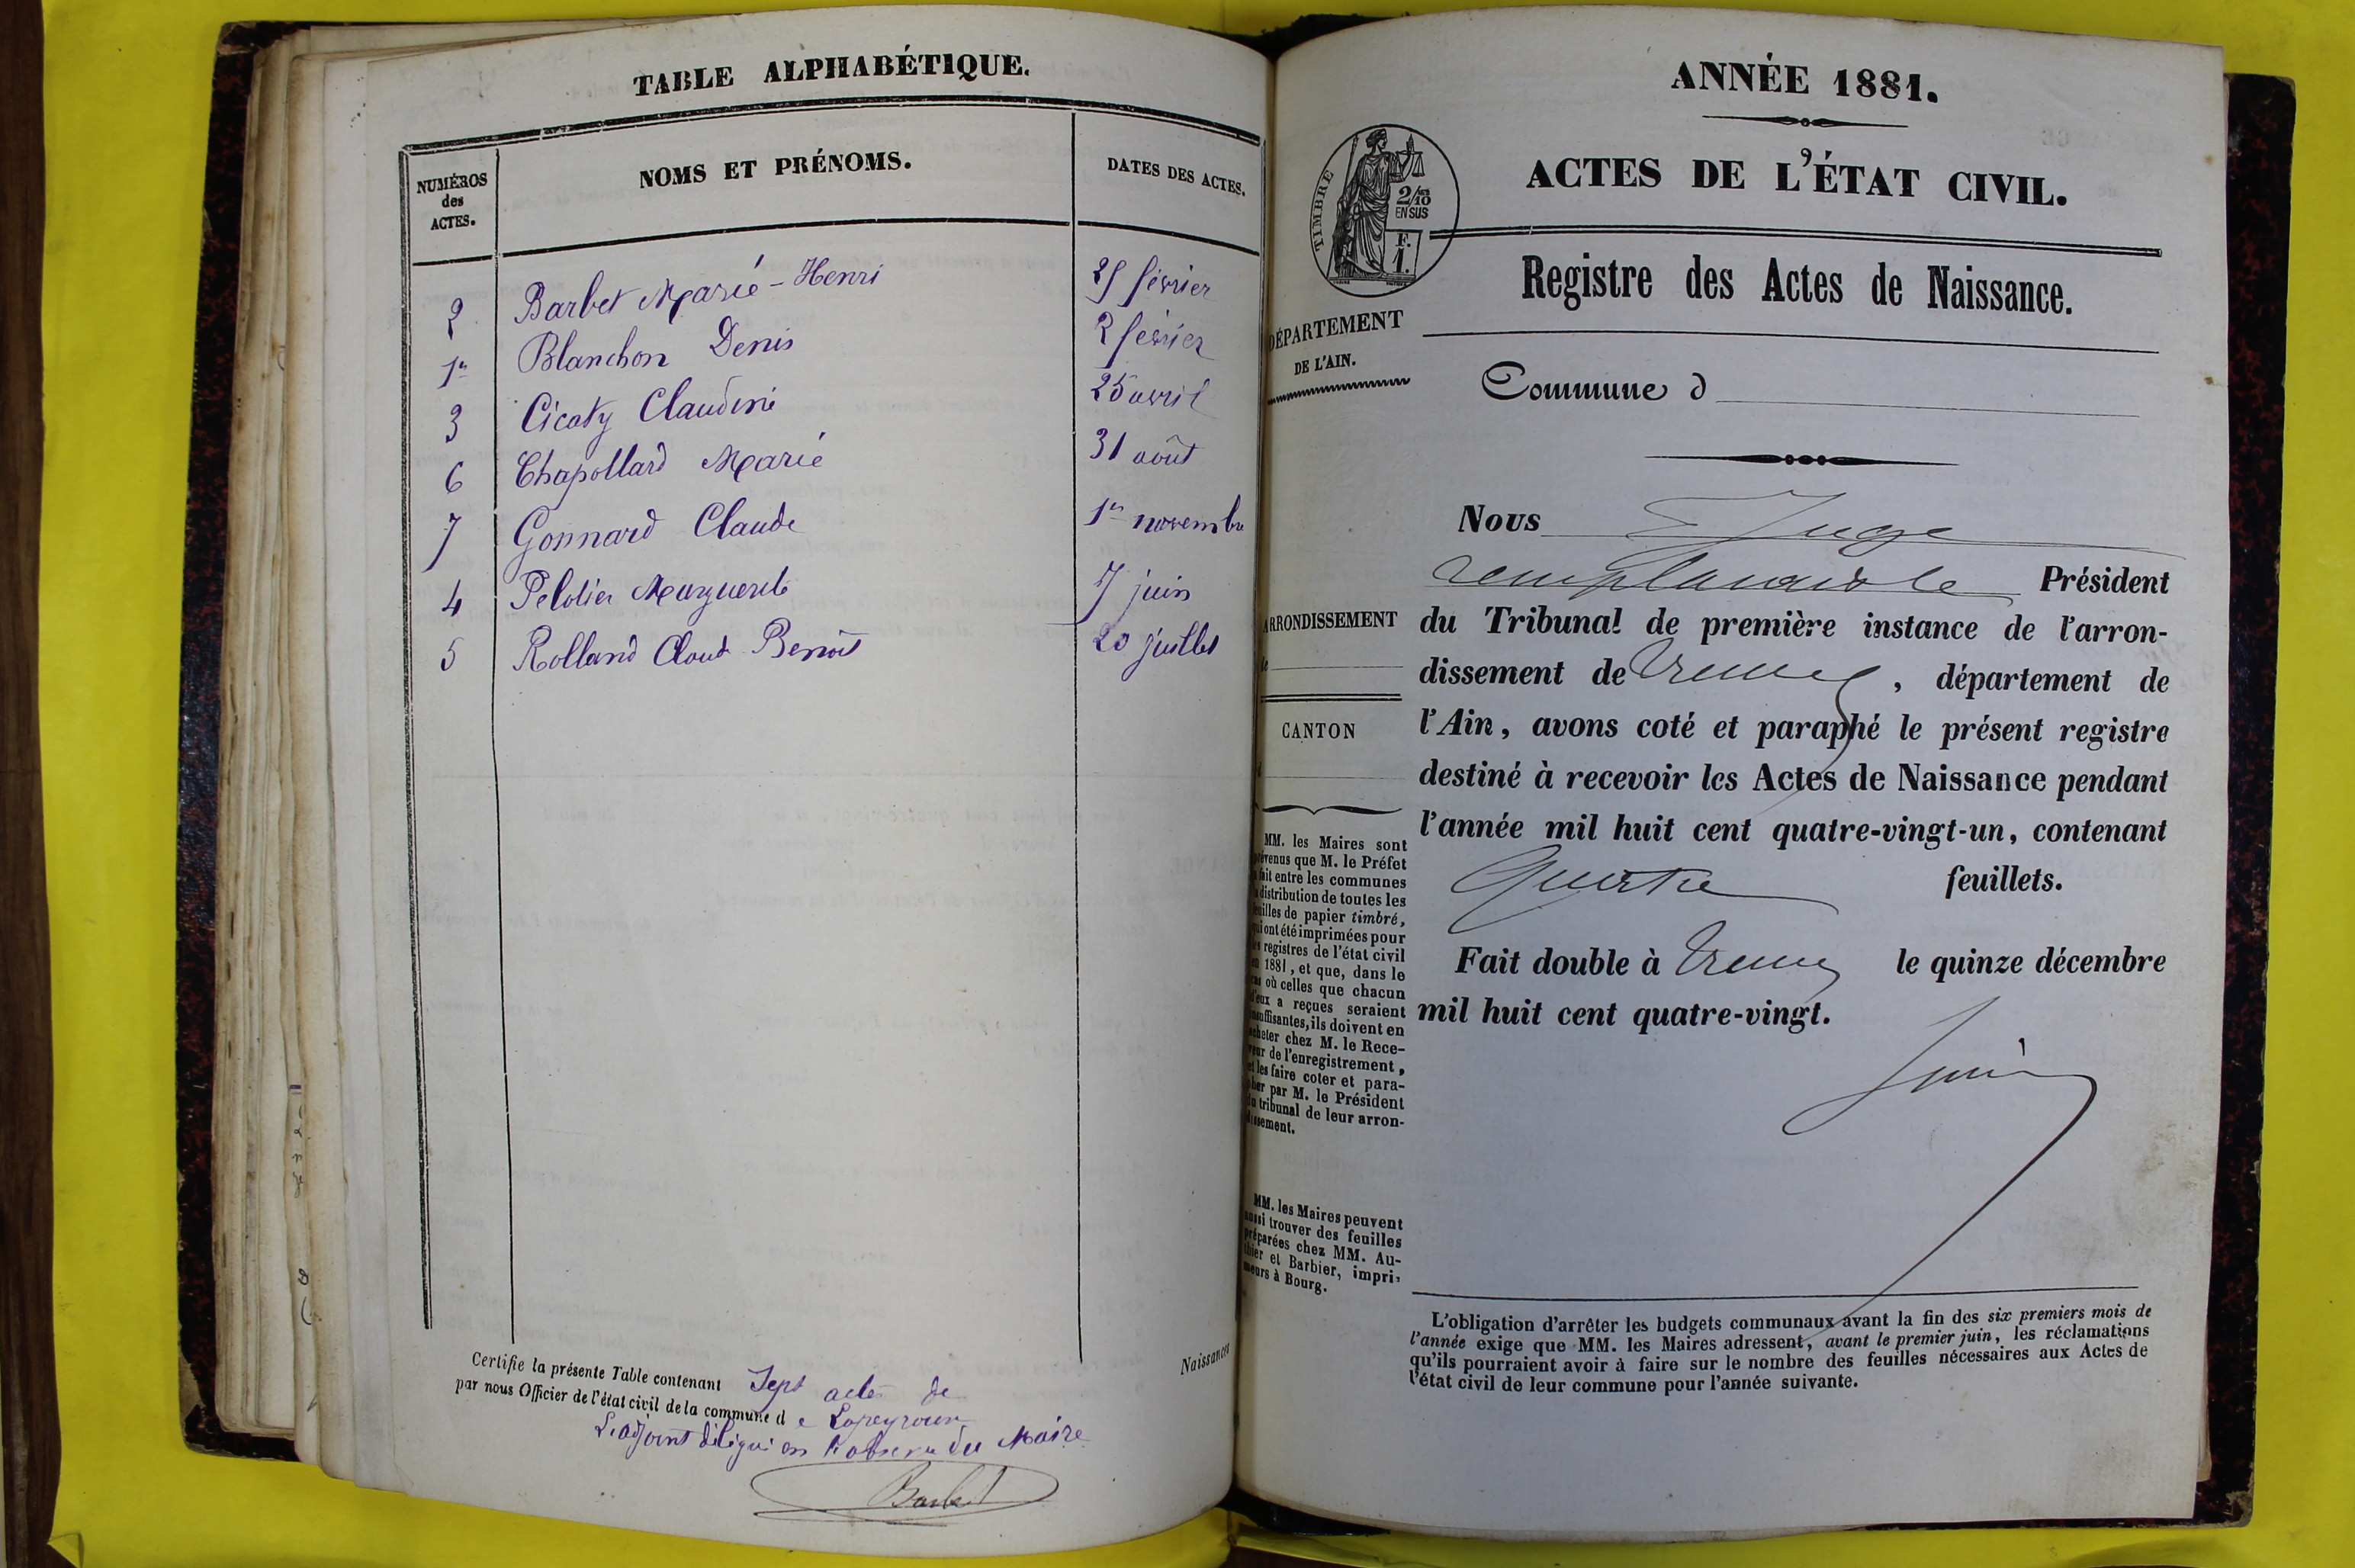 TABLE ALPHABÉTIQUE.
NUMÉROS des ACTES.
NOMS ET PRÉNOMS.
DATES DES ACTES.
2 Barbet Marie-Henri février
1er Blanchon Denis 2 février
3 Cicoty Claudine 25 avril
6 Chapollard Marie 31 août
7 Gonnard Claude 1er novembre
4 Pelotier Marguerite 7 juin
5 Rolland Claude Benoit 20 juillet
Certifie la présente Table contenant Sept actes de Naissances
par nous Officier de l'état civil de la commune de Lapeyrouse
L'adjoint délégué en l'absence du Maire
Barbet
ANNÉE 1881.
ACTES DE L'ÉTAT CIVIL.
TIMBRE
2/10
EN SUS
F.
1.
Registre des Actes de Naissance.
DÉPARTEMENT
DE L'AIN.
Commune d
Nous Juge
remplaçant le Président
ARRONDISSEMENT
du Tribunal de première instance de l'arron-
dissement de Trévoux, département de
CANTON
l'Ain, avons coté et paraphé le présent registre
destiné à recevoir les Actes de Naissance pendant
l'année mil huit cent quatre-vingt-un, contenant
Quatre feuillets.
Fait double à Trévoux le quinze décembre
mil huit cent quatre-vingt.
MM. les Maires sont
prévenus que M. le Préfet
a fait entre les communes
la distribution de toutes les
feuilles de papier timbré,
qui ont été imprimées pour
les registres de l'état civil
en 1881, et que, dans le
cas où celles que chacun
d'eux a reçues seraient
insuffisantes, ils doivent en
acheter chez M. le Rece-
veur de l'enregistrement,
et les faire coter et para-
pher par M. le Président
du tribunal de leur arron-
dissement.
MM. les Maires peuvent
aussi trouver des feuilles
préparées chez MM. Au-
thier et Barbier, impri-
meurs à Bourg.
L'obligation d'arrêter les budgets communaux avant la fin des six premiers mois de
l'année exige que MM. les Maires adressent, avant le premier juin, les réclamations
qu'ils pourraient avoir à faire sur le nombre des feuilles nécessaires aux Actes de
l'état civil de leur commune pour l'année suivante.